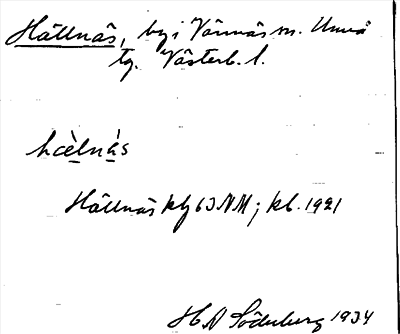 Hällnäs, by i Vännäs sn. Umeå
tg. Västerb. l.
hæ̀lnás
Hällnäs kbj 63 NM; kb. 1921
H A Söderberg 1934